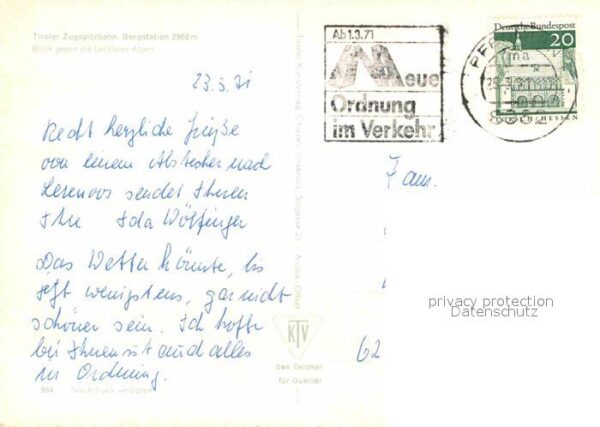 Tiroler Zugspitzbahn, Bergstation 2950 m
Blick gegen die Lechtaler Alpen
23.3.71
Recht herzliche Grüße
von einem Abstecher nach
Lermoos sendet Ihnen
Ihre Ida Wölfinger
Das Wetter könnte, bis
jetzt wenigstens, gar nicht
schöner sein. Ich hoffe
bei Ihnen ist auch alles
in Ordnung.
864 Nachdruck verboten
KTV
Das Zeichen
für Qualität
Ab 1.3.71
Neue
Ordnung
im Verkehr
Deutsche Bundespost
20
HESSEN
Fam.
62
privacy protection
Datenschutz